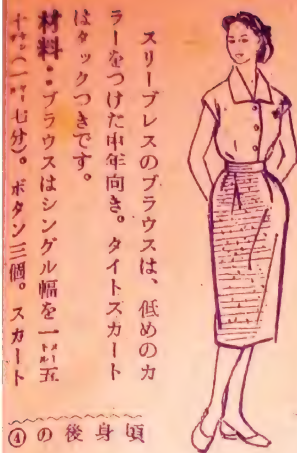 スリーブレスのブラウスは、低めのカ
ラーをつけた中年向き。タイトズカート
はタックつきです。
材料…ブラウスはシングル幅を一メートル五
十センチ(一ヤール七分)。ボタン三個。スカート
頃
身
後
の
④